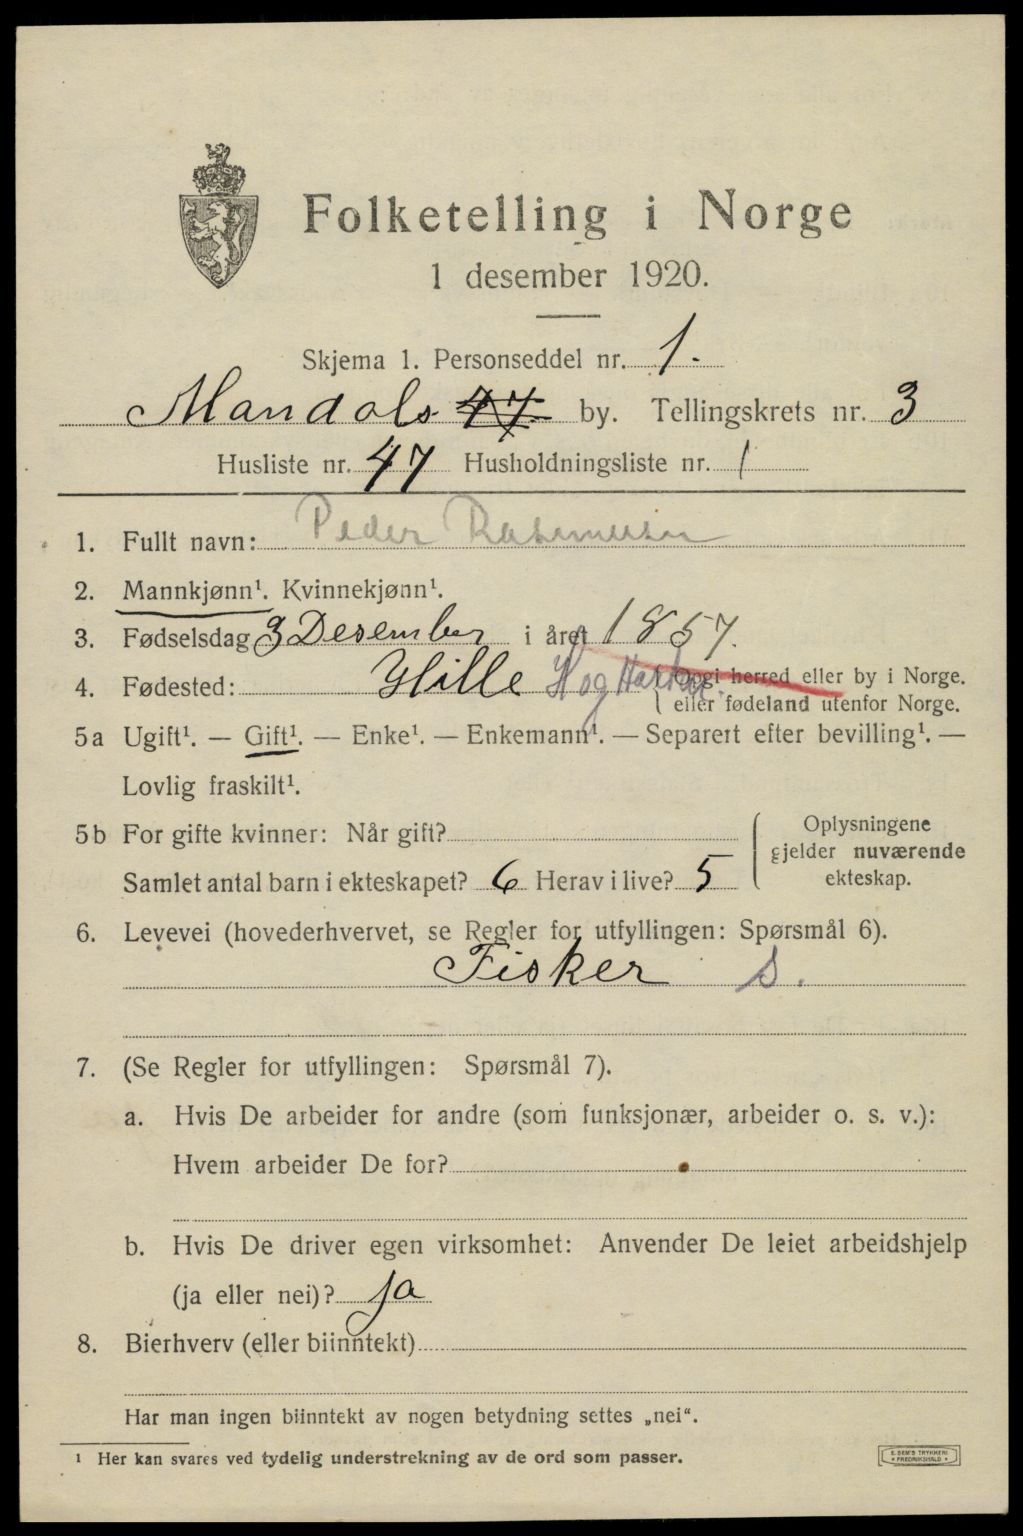 Folketelling i Norge
1 desember 1920.
Skjema 1. Personseddel nr. 1.
Mandals 47 by. Tellingskrets nr. 3
Husliste nr. 47 Husholdningsliste nr. 1
1. Fullt navn: Peder Rasmussen
2. Mannkjønn¹. Kvinnekjønn¹.
3. Fødselsdag 3 Desember i året 1857.
4. Fødested: Hille H og Harkm. Opgi herred eller by i Norge.
eller fødeland utenfor Norge.
5a Ugift¹. — Gift¹. — Enke¹. — Enkemann¹. — Separert efter bevilling¹. —
Lovlig fraskilt¹.
5b For gifte kvinner: Når gift?
Samlet antal barn i ekteskapet? 6 Herav i live? 5
Oplysningene
gjelder nuværende
ekteskap.
6. Levevei (hovederhvervet, se Regler for utfyllingen: Spørsmål 6).
Fisker s.
7. (Se Regler for utfyllingen: Spørsmål 7).
a. Hvis De arbeider for andre (som funksjonær, arbeider o. s. v.):
Hvem arbeider De for?
b. Hvis De driver egen virksomhet: Anvender De leiet arbeidshjelp
(ja eller nei)? ja
8. Bierhverv (eller biinntekt)
Har man ingen biinntekt av nogen betydning settes „nei“.
¹ Her kan svares ved tydelig understrekning av de ord som passer.
E. SEM'S TRYKKERI
FREDRIKSHALD